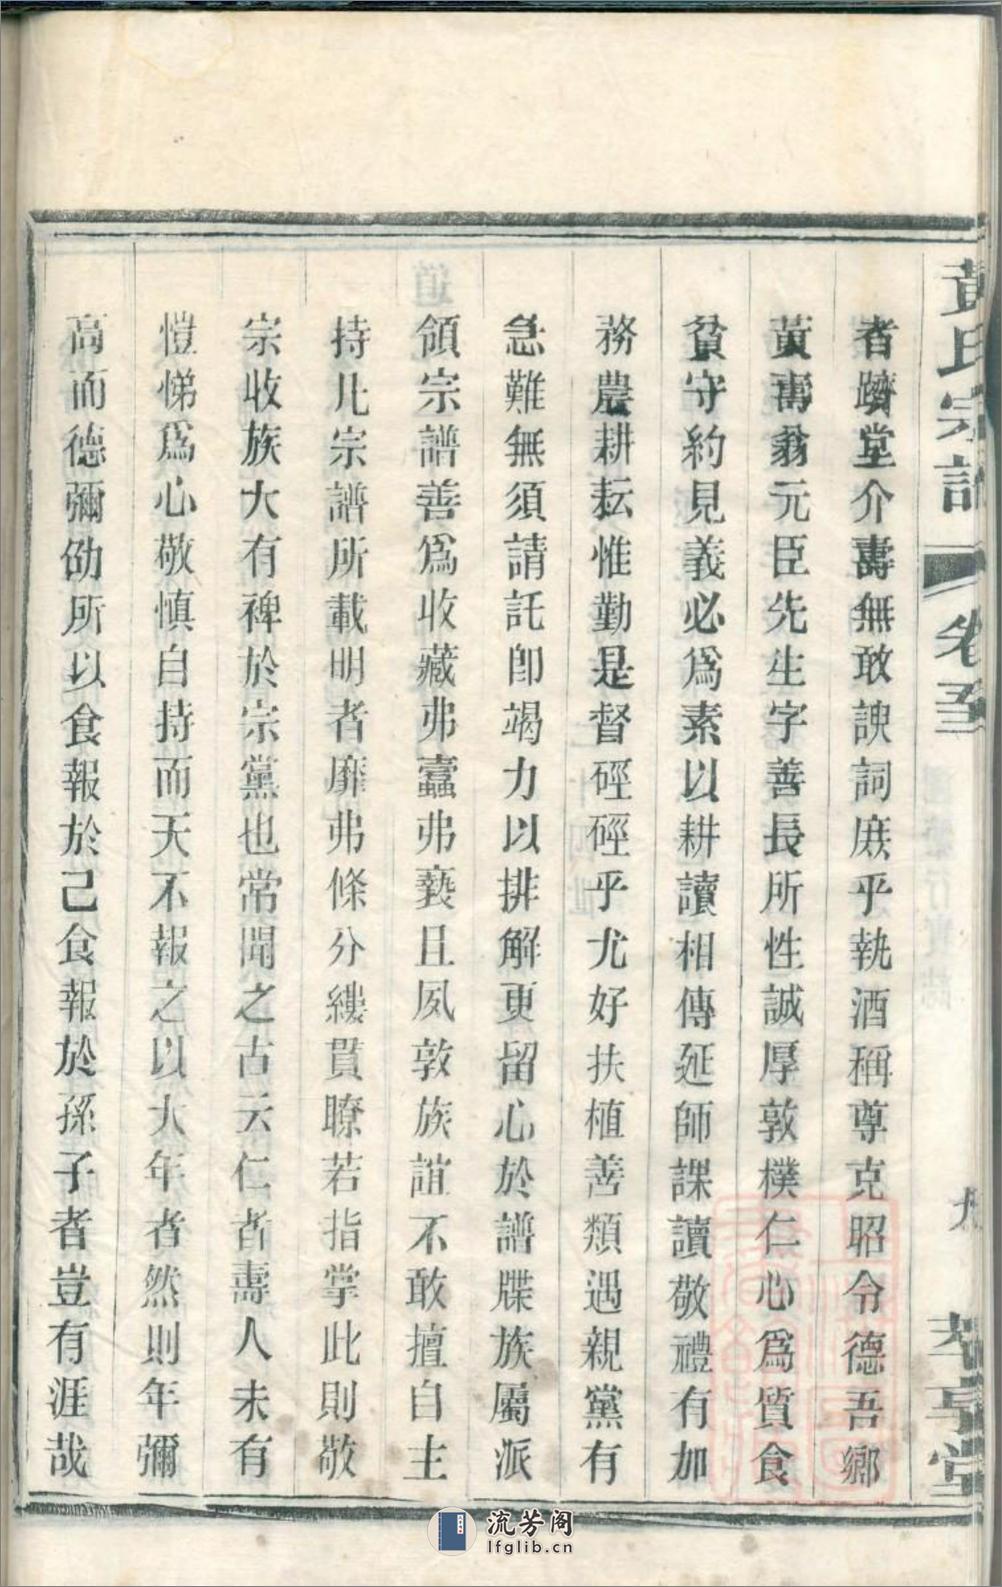 黃氏宗譜 卷五
者躋堂介壽無敢諛詞庶乎執酒稱尊克昭令德吾鄉
黃壽翁元臣先生字善長所性誠厚敦樸仁心爲質食
貧守約見義必爲素以耕讀相傳延師課讀敬禮有加
務農耕耘惟勤是督硜硜乎尤好扶植善類遇親黨有
急難無須請託卽竭力以排解更留心於譜牒族屬派
領宗譜善爲收藏弗蠹弗褻且夙敦族誼不敢擅自主
持凡宗譜所載明者靡弗條分縷貫瞭若指掌此則敬
宗收族大有裨於宗黨也常聞之古云仁者壽人未有
愷悌爲心敬慎自持而天不報之以大年者然則年彌
高而德彌劭所以食報於己食報於孫子者豈有涯哉
流芳阁
lfglib.cn